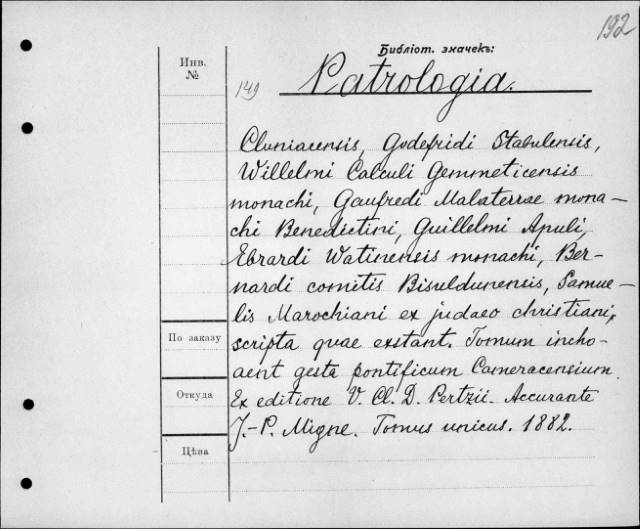 192
Библіот. значекъ:
Инв.
№
149
Patrologia.
Cluniacensis, Godefridi Stabulensis,
Willelmi Calculi Gemmeticensis
monachi, Gaufredi Malaterrae mona-
chi Benedictini, Guillelmi Apuli,
Ebrardi Watinensis monachi, Ber-
nardi comitis Bisuldunensis, Samue-
lis Marochiani ex judaeo christiani,
По заказу
scripta quae exstant. Tomum incho-
aent gesta pontificum Cameracensium.
Откуда
Ex editione V. Cl. D. Pertzii. Accurante
J.-P. Migne. Tomus unicus. 1882.
Цѣна